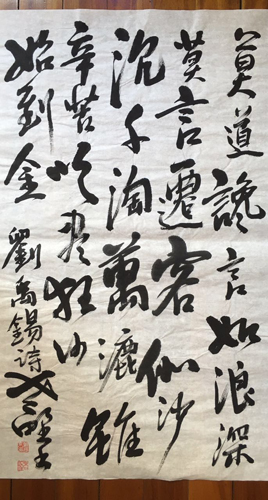 莫道讒言如浪深
莫言遷客似沙
沉千淘萬漉雖
辛苦吹盡狂沙
始到金
劉禹錫詩